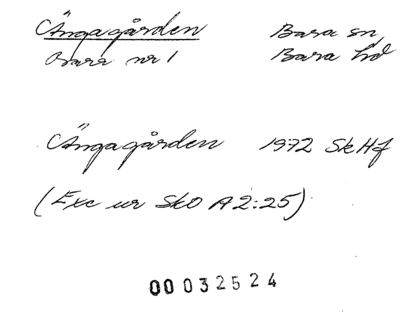 Ängagården Bara sn,
Bara nr 1 Bara hd
Ängagården 1972 SkHf
(Exc ur SkO A2:25)
00032524